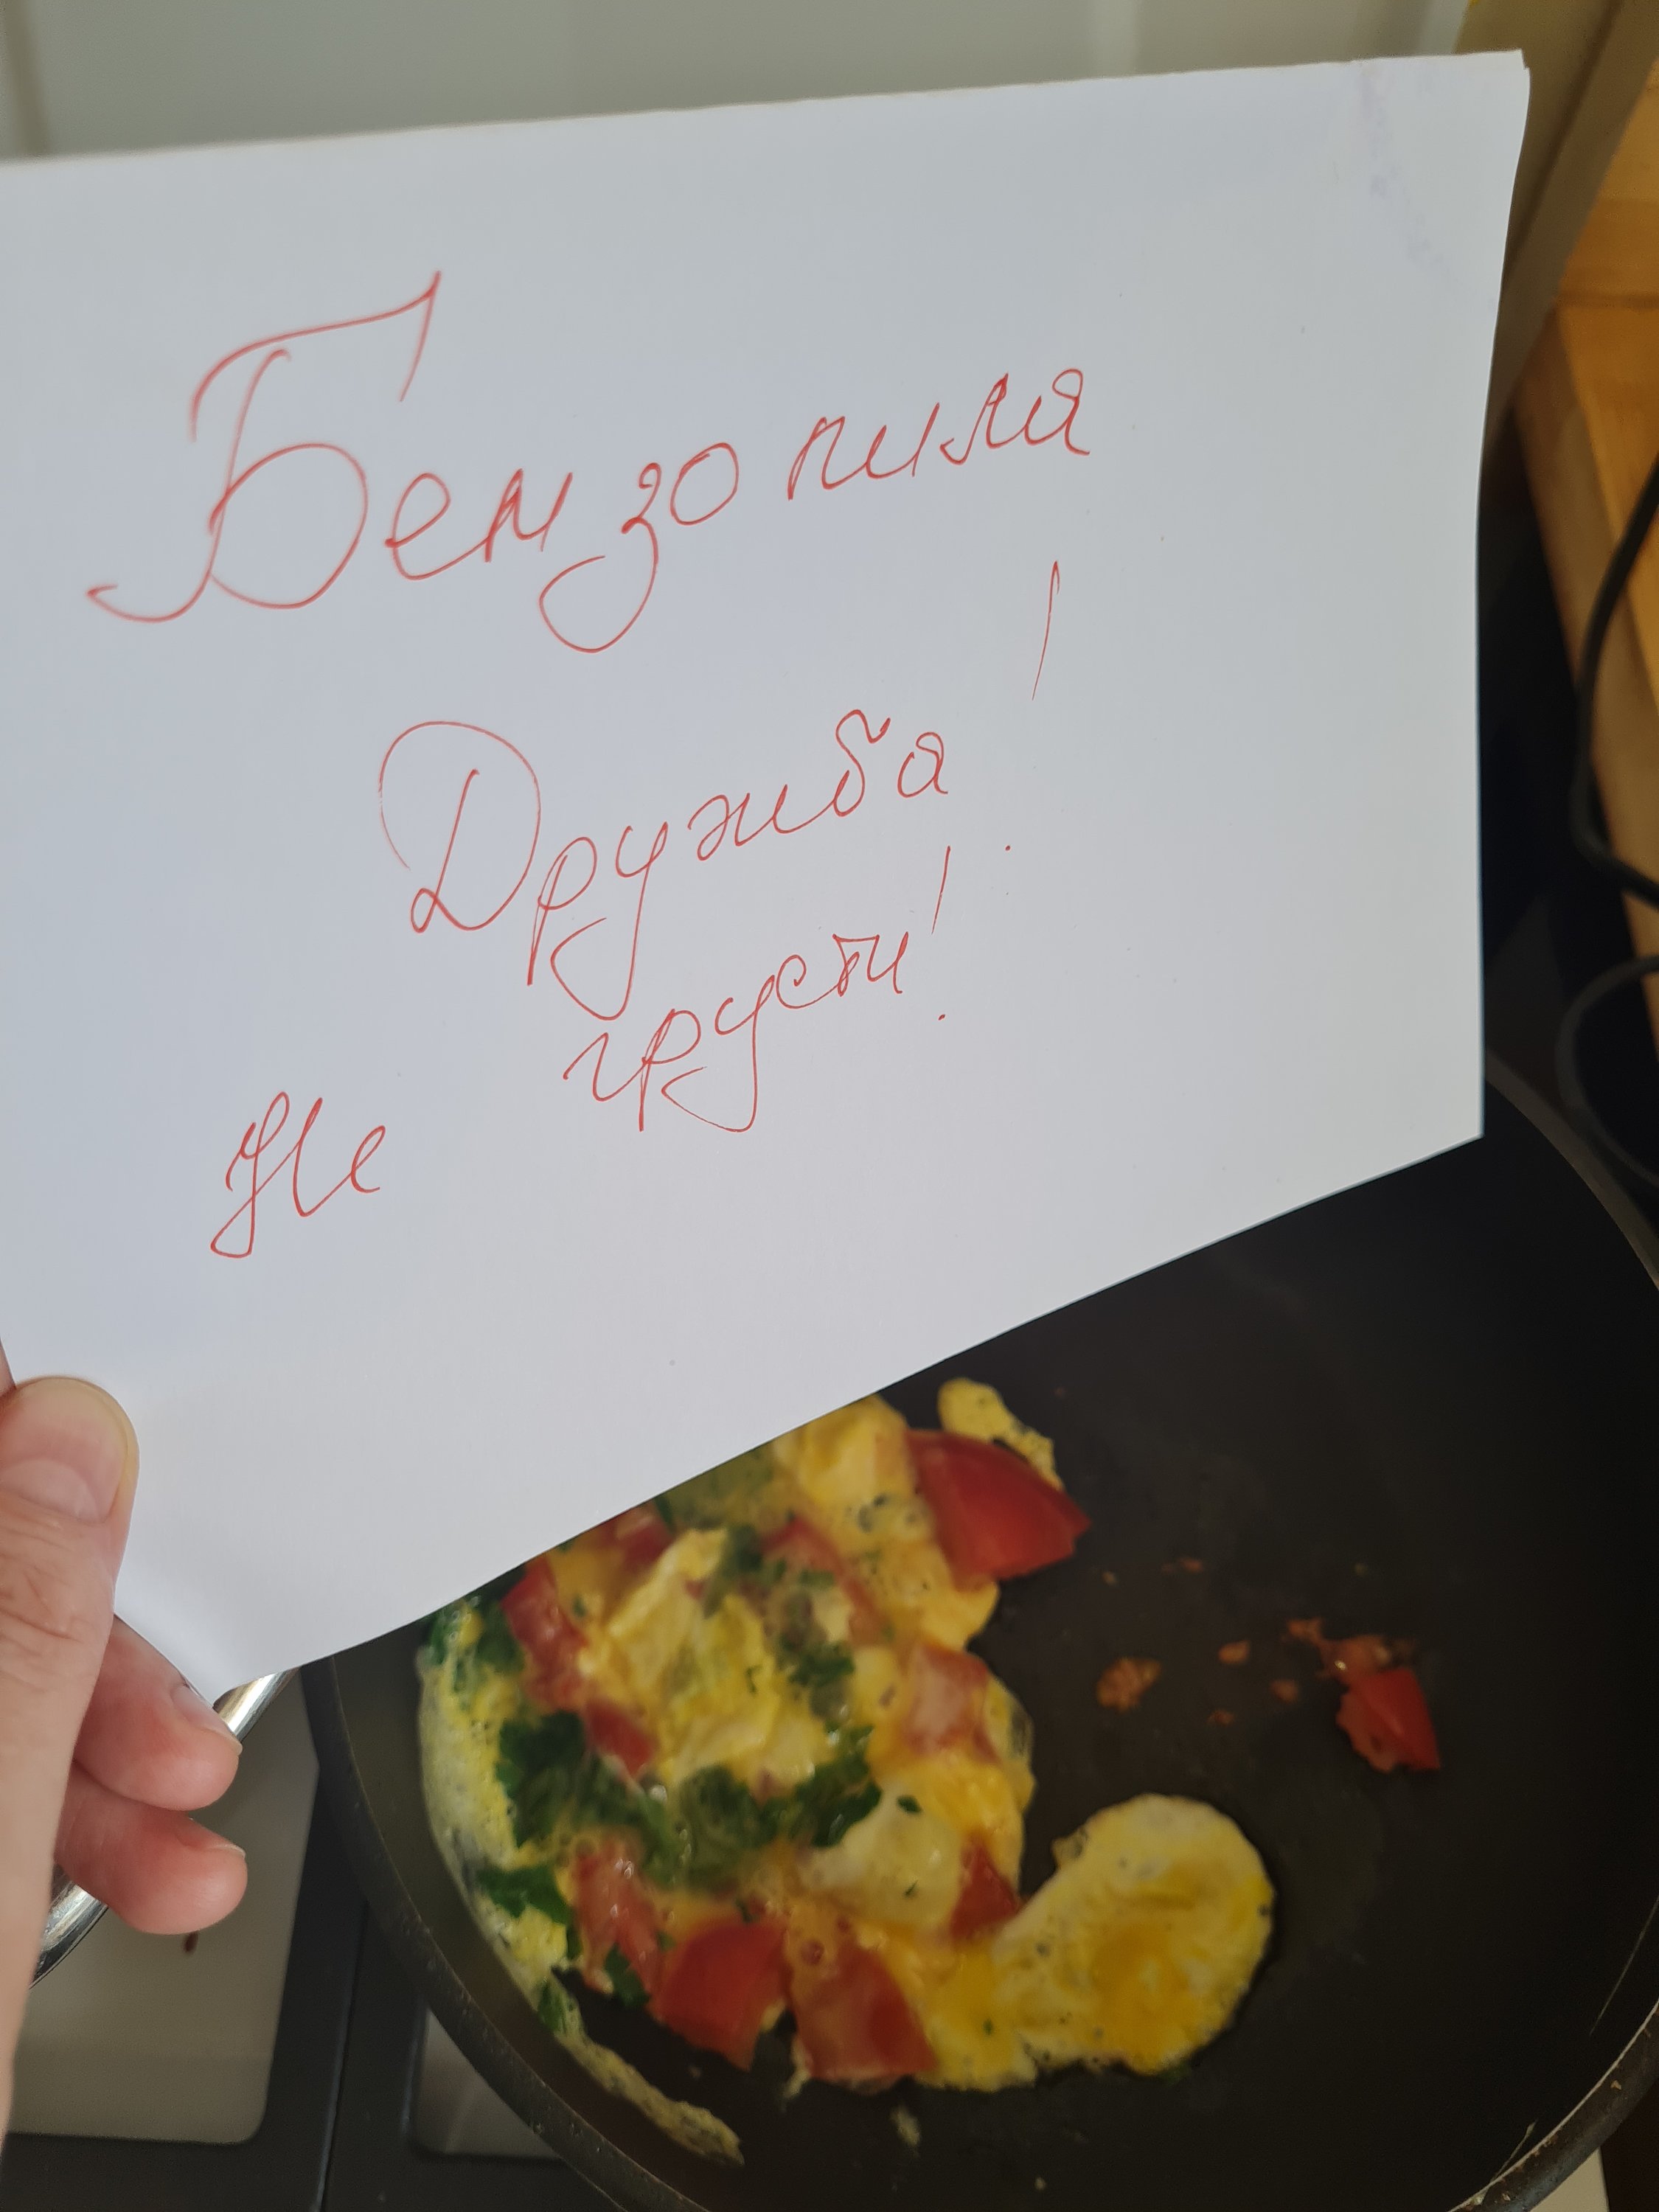 Бензопиля
Дружба!
Не грусти!